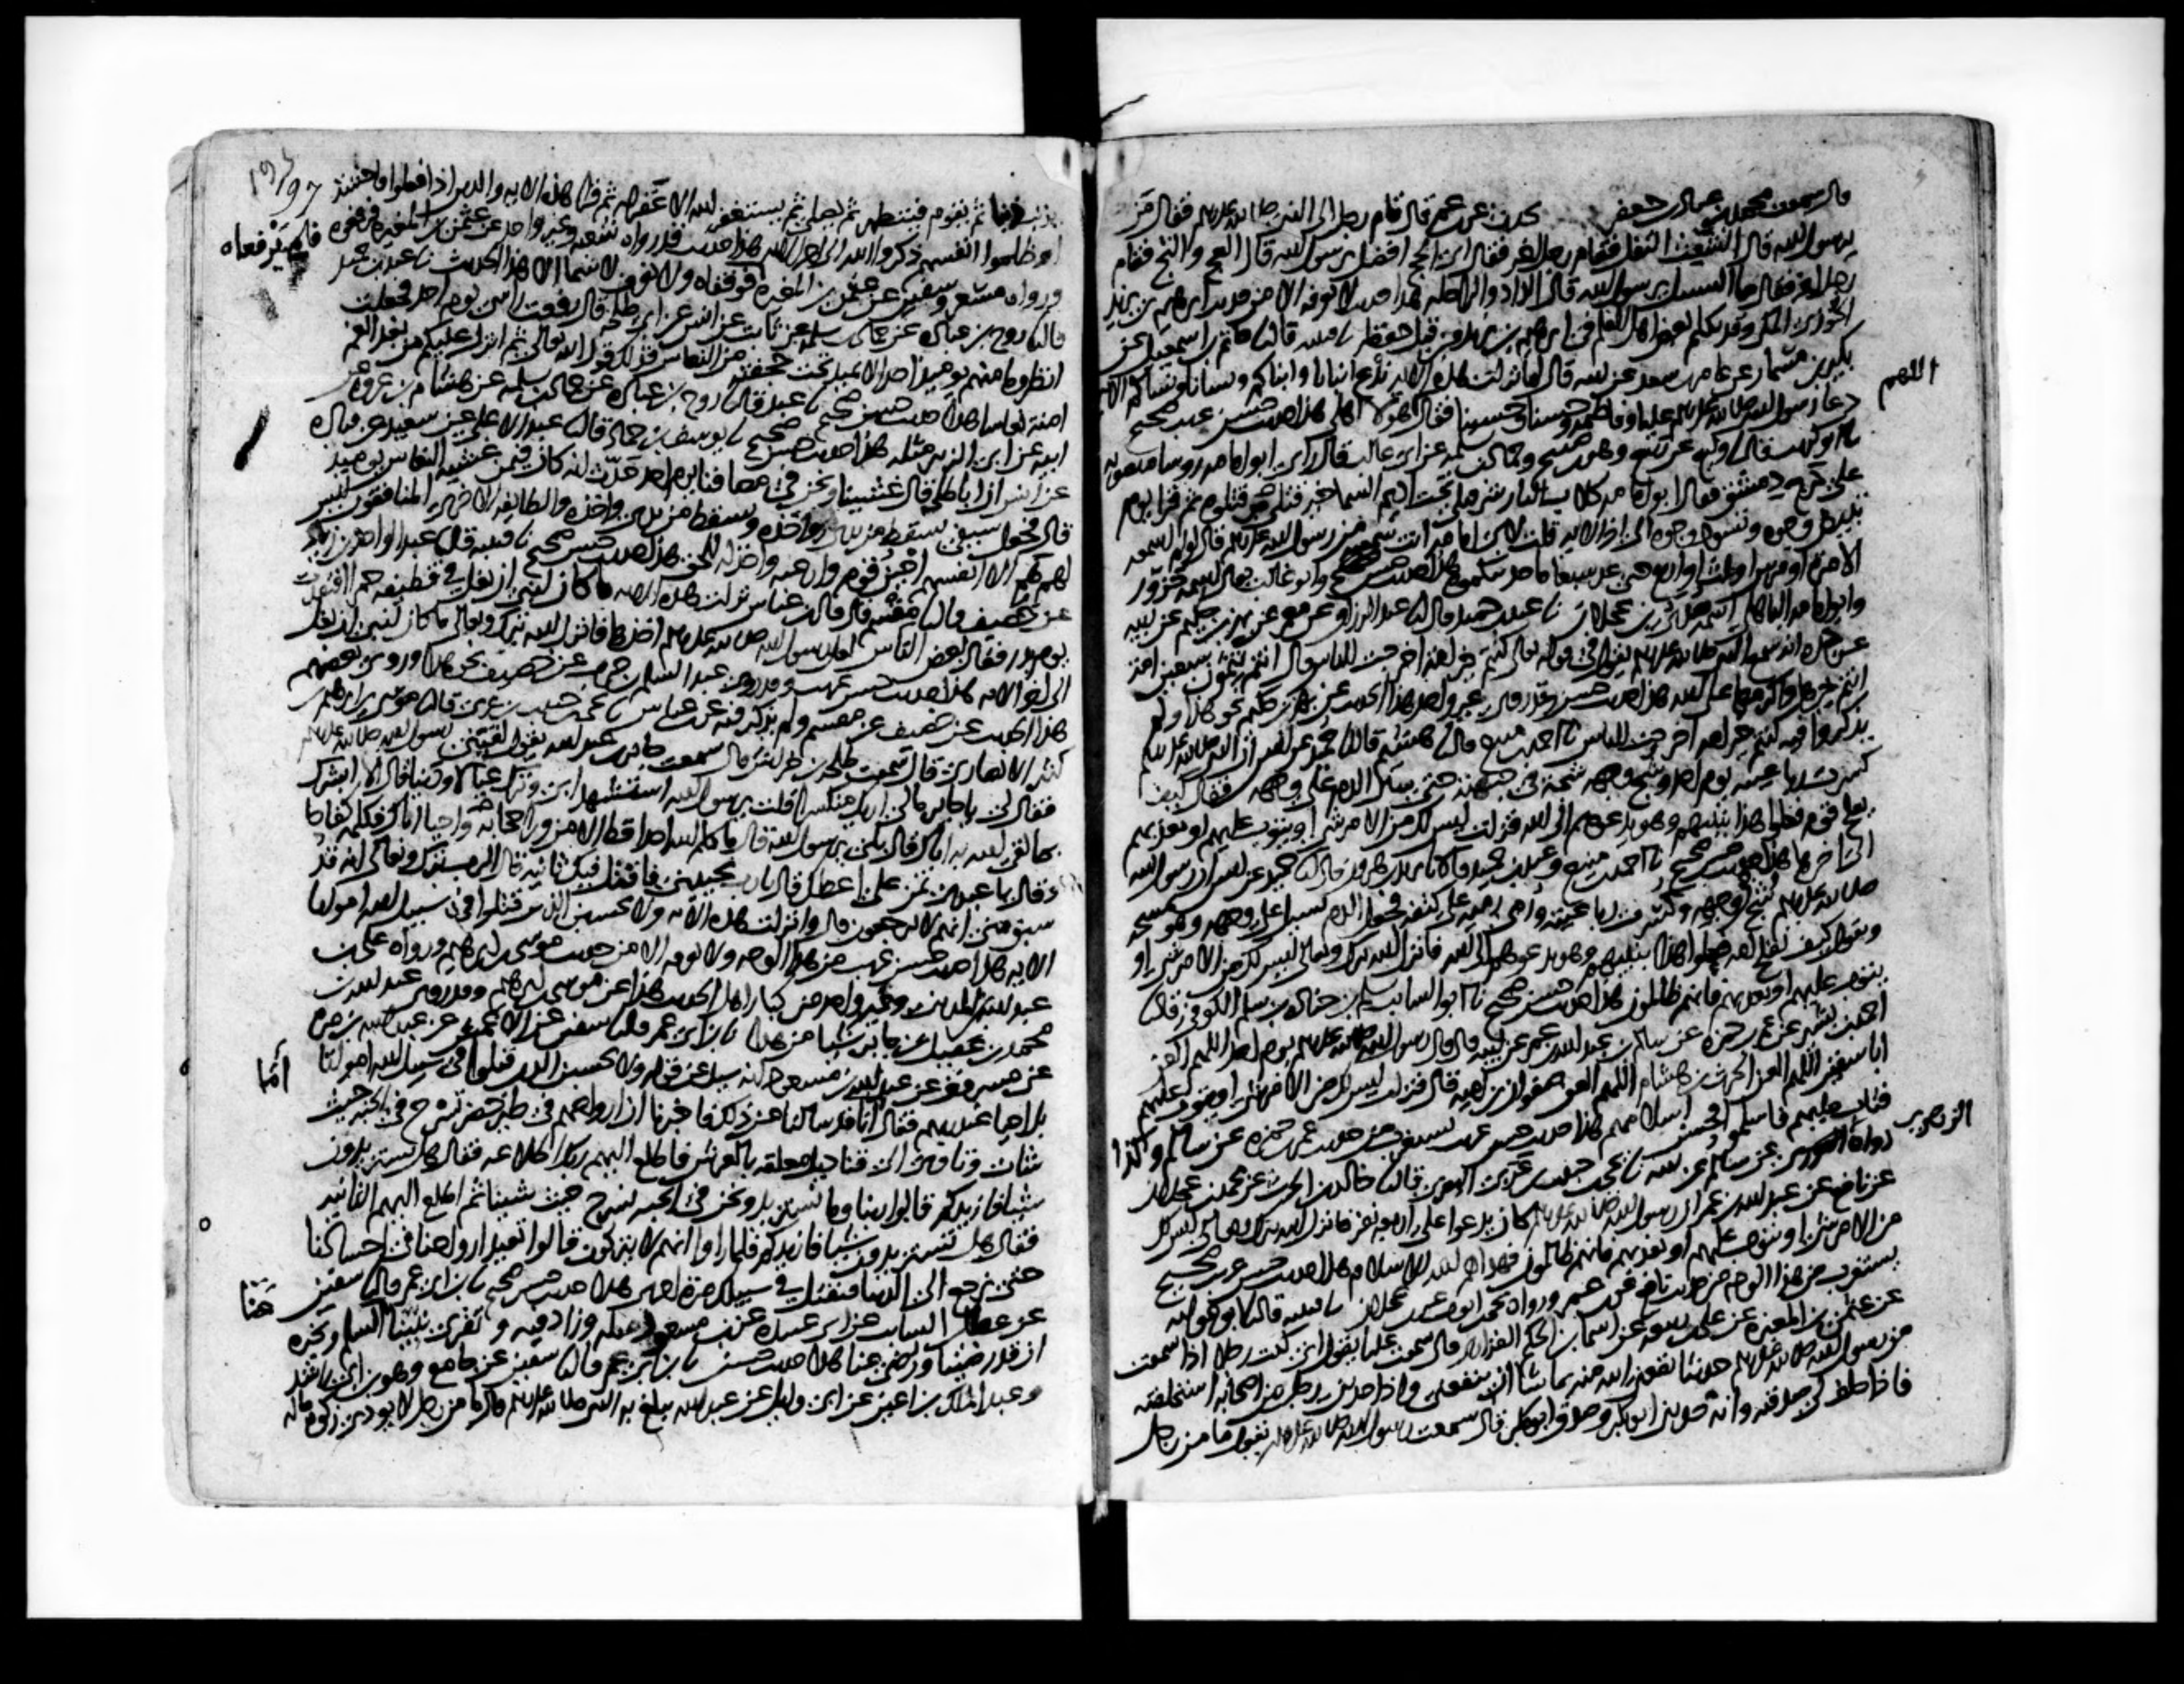 قال سمعت محمد بن عباد بن جعفر يحدث عن ابن عمر قال قام رجل الى النبي صلى الله عليه وسلم فقال من
يرسول الله قال الشعث التفل فقام رجل اخر فقال اي الحج افضل يرسول الله قال العج والثج فقام
رجل اخر فقال ما السبيل يرسول الله قال الزاد والراحلة هذا حديث لا نعرفه الا من حديث ابرهيم بن يزيد
الخوزي المكي وقد تكلم بعض اهل العلم في ابرهيم بن يزيد من قبل حفظه نا قتيبة قال نا حاتم بن اسمعيل عن
بكير بن مسمار عن عامر بن سعد عن ابيه قال لما نزلت هذه الاية ندع ابنانا وابناكم ونسانا ونساكم الاية
دعا رسول الله صلى الله عليه وسلم عليا وفاطمة وحسنا وحسينا فقال اللهم هولا اهلي هذا حديث حسن غريب صحيح
نا ابو كريب قال نا وكيع عن ربيع وهو بن صبيح وحماد بن سلمة عن ابي غالب قال راى ابو امامة روسا منصوبة
على درج دمشق فقال ابو امامة كلاب النار شر قتلى تحت اديم السما خير قتلى من قتلوه ثم قرا يوم
تبيض وجوه وتسود وجوه الى اخر الاية قلت لابي امامة انت سمعته من رسول الله صلى الله عليه وسلم قال لو لم اسمعه
الا مرة او مرتين او ثلثا او اربعا حتى عد سبعا ما حدثتكموه هذا حديث حسن وابو غالب يقال اسمه حزور
وابو امامة الباهلي اسمه صدي بن عجلان نا عبد بن حميد قال نا عبد الرزاق عن معمر عن بهز بن حكيم عن ابيه
عن جده انه سمع النبي صلى الله عليه وسلم يقول في قوله تعالى كنتم خير امة اخرجت للناس قال انتم تتمون سبعين امة
انتم خيرها واكرمها على الله هذا حديث حسن وقد روى غير واحد هذا الحديث عن بهز بن حكيم نحو هذا ولم
يذكروا فيه كنتم خير امة اخرجت للناس نا احمد بن منيع قال نا هشيم قال نا حميد عن انس ان النبي صلى الله عليه وسلم
كسرت رباعيته يوم احد وشج وجهه شجة في جبهته حتى سال الدم على وجهه فقال كيف
يفلح قوم فعلوا هذا بنبيهم وهو يدعوهم الى الله فنزلت ليس لك من الامر شي او يتوب عليهم او يعذبهم
الى اخرها هذا حديث حسن صحيح نا احمد بن منيع وعبد بن حميد قالا نا يزيد بن هرون قال نا حميد عن انس ان رسول الله
صلى الله عليه وسلم شج في وجهه وكسرت رباعيته ورمي رمية على كتفه فجعل الدم يسيل على وجهه وهو يمسحه
ويقول كيف تفلح امة فعلوا هذا بنبيهم وهو يدعوهم الى الله فانزل الله تبارك وتعالى ليس لك من الامر شي او
يتوب عليهم او يعذبهم فانهم ظالمون هذا حديث حسن صحيح نا ابو السايب سلم بن جنادة بن سلم الكوفي قال نا
احمد بن بشير عن عمر بن حمزة عن سالم بن عبد الله بن عمر عن ابيه قال قال رسول الله صلى الله عليه وسلم يوم احد اللهم العن
ابا سفين اللهم العن الحرث بن هشام اللهم العن صفوان بن امية قال فنزلت ليس لك من الامر شي او يتوب عليهم
فتاب عليهم فاسلموا فحسن اسلامهم هذا حديث حسن غريب يستغرب من حديث عمر بن حمزة عن سالم وكذا
رواه الزهري عن سالم عن ابيه نا يحيى بن حبيب بن عربي البصري قال نا خالد بن الحرث عن محمد بن عجلان
عن نافع عن عبد الله بن عمر ان رسول الله صلى الله عليه وسلم كان يدعوا على اربعة نفر فانزل الله تبارك وتعالى ليس لك
من الامر شي او يتوب عليهم او يعذبهم فانهم ظالمون فهداهم الله للاسلام هذا حديث حسن غريب صحيح
يستغرب من هذا الوجه من حديث نافع عن ابن عمر ورواه يحيى بن ايوب عن ابن عجلان نا قتيبة قال نا ابو عوانة
عن عثمن بن المغيرة عن علي بن ربيعة عن اسما بن الحكم الفزاري قال سمعت عليا يقول اني كنت رجلا اذا سمعت
من رسول الله صلى الله عليه وسلم حديثا نفعني الله منه بما شا ان ينفعني واذا حدثني رجل من اصحابه استحلفته
فاذا حلف لي صدقته وانه حدثني ابو بكر وصدق ابو بكر قال سمعت رسول الله صلى الله عليه وسلم يقول ما من رجل
اللهم
الزهري
يذنب ذنبا ثم يقوم فيتطهر ثم يصلي ثم يستغفر الله الا غفر له ثم قرا هذه الاية والذين اذا فعلوا فاحشة
او ظلموا انفسهم ذكروا الله الى اخر الاية هذا حديث قد رواه شعبة وغير واحد عن عثمن بن المغيرة فرفعوه
ورواه مسعر وسفين عن عثمن بن المغيرة فلم يرفعاه ولا نعرف لاسما الا هذا الحديث نا عبد بن حميد
قال نا روح بن عبادة عن حماد بن سلمة عن ثابت عن انس عن ابي طلحة قال رفعت راسي يوم احد فجعلت
انظر وما منهم يوميذ احد الا يميد تحت حجفته من النعاس فذلك قول الله تعالى ثم انزل عليكم من بعد الغم
امنة نعاسا هذا حديث حسن صحيح نا عبد قال نا روح بن عبادة عن حماد بن سلمة عن هشام بن عروة عن
ابيه عن ابي الزبير مثله هذا حديث حسن صحيح نا يوسف بن حماد قال نا عبد الاعلى عن سعيد عن قتادة
عن انس ان ابا طلحة قال غشينا ونحن في مصافنا يوم احد حدث انه كان فيمن غشيه النعاس يوميذ
قال فجعل سيفي يسقط من يدي واخذه ويسقط من يدي واخذه والطايفة الاخرى المنافقون ليس
لهم هم الا انفسهم اجبن قوم وارعبه واخذله للحق هذا حديث حسن صحيح نا قتيبة قال نا عبد الواحد بن زياد
عن خصيف قال نا مقسم قال قال بن عباس نزلت هذه الاية ما كان لنبي ان يغل في قطيفة حمرا افتقدت
يوم بدر فقال بعض الناس لعل رسول الله صلى الله عليه وسلم اخذها فانزل الله تبارك وتعالى ما كان لنبي ان يغل
الى اخر الاية هذا حديث حسن غريب وقد روى عبد السلم بن حرب عن خصيف نحو هذا وروى بعضهم
هذا الحديث عن خصيف عن مقسم ولم يذكر فيه عن بن عباس نا يحيى بن حبيب بن عربي قال نا موسى بن ابرهيم بن
كثير الانصاري قال سمعت طلحة بن خراش قال سمعت جابر بن عبد الله يقول لقيني رسول الله صلى الله عليه وسلم
فقال لي يا جابر مالي اراك منكسرا قلت يرسول الله استشهد ابي وترك عيالا ودينا قال الا ابشرك
بما لقي الله به اباك قال بلى يرسول الله قال ما كلم الله احدا قط الا من ورا حجابه واحيا اباك فكلمه كفاحا
وقال يا عبدي تمن علي اعطك قال يا رب تحييني فاقتل فيك ثانية قال الرب تبارك وتعالى انه قد
سبق مني انهم لا يرجعون قال وانزلت هذه الاية ولا تحسبن الذين قتلوا في سبيل الله امواتا
الاية هذا حديث حسن غريب من هذا الوجه ولا نعرفه الا من حديث موسى بن ابرهيم ورواه علي بن
عبد الله بن المديني وغير واحد من كبار اهل الحديث هكذا عن موسى بن ابرهيم وقد روى عبد الله بن
محمد بن عقيل عن جابر شيا من هذا نا بن ابي عمر قال نا سفين عن الاعمش عن عبد الله بن مرة
عن مسروق عن عبد الله بن مسعود انه سيل عن قوله ولا تحسبن الذين قتلوا في سبيل الله امواتا
بل احيا عند ربهم فقال اما انا قد سالنا عن ذلك فاخبرنا ان ارواحهم في طير خضر تسرح في الجنة حيث
شات وتاوي الى قناديل معلقة بالعرش فاطلع اليهم ربك اطلاعة فقال هل تستزيدون
شيا فازيدكم قالوا ربنا وما نستزيد ونحن في الجنة نسرح حيث شينا ثم اطلع اليهم الثانية
فقال هل تستزيدون شيا فازيدكم فلما راوا انهم لا يتركون قالوا تعيد ارواحنا في اجسادنا
حتى نرجع الى الدنيا فنقتل في سبيلك مرة اخرى هذا حديث حسن صحيح نا بن ابي عمر قال نا سفين
عن عطا بن السايب عن ابي عبيدة عن بن مسعود مثله وزاد فيه وتقري نبينا السلم وتخبره
ان قد رضينا ورضي عنا هذا حديث حسن نا بن ابي عمر قال نا سفين عن جامع وهو بن ابي راشد
وعبد الملك بن اعين عن ابي وايل عن عبد الله يبلغ به النبي صلى الله عليه وسلم قال ما من رجل لا يودي زكوة ماله
فلم يرفعاه
اما
عنا